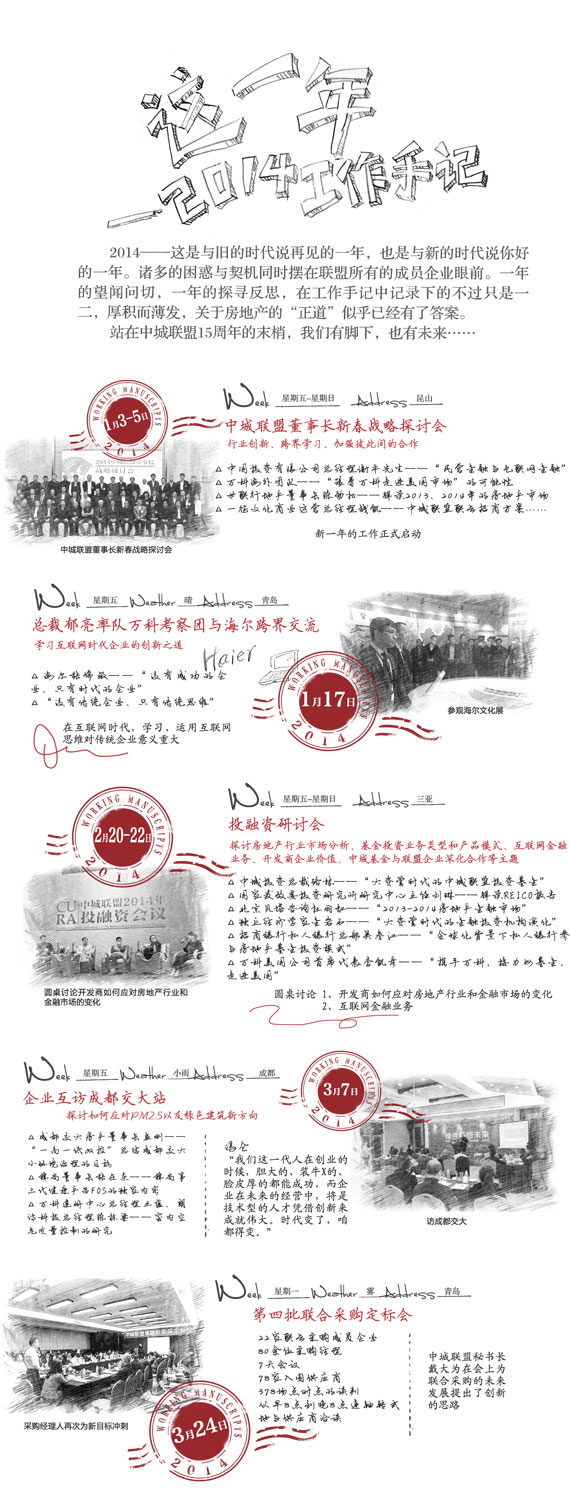 这一年
—2014工作手记
2014——这是与旧的时代说再见的一年，也是与新的时代说你好
的一年。诸多的困惑与契机同时摆在联盟所有的成员企业眼前。一年
的望闻问切，一年的探寻反思，在工作手记中记录下的不过只是一
二，厚积而薄发，关于房地产的“正道”似乎已经有了答案。
站在中城联盟15周年的末梢，我们有脚下，也有未来……
WORKING MANUSCRIPTS
1月3-5日
2014
Week 星期五-星期日 Address 昆山
中城联盟董事长新春战略探讨会
行业创新、跨界学习、加强彼此间的合作
△ 中国投资有限公司总经理谢平先生——“民营金融与互联网金融”
△ 万科海外团队——“跟着万科走进美国市场”的可能性
△ 世联行地产董事长陈劲松——解读2013、2014年的房地产市场
△ 一筑文化商业运营总经理钱凯——中城联盟联合招商方案……
新一年的工作正式启动
中城联盟董事长新春战略探讨会
Week 星期五 Weather 晴 Address 青岛
总裁郁亮率队万科考察团与海尔跨界交流
学习互联网时代企业的创新之道
Haier
△ 海尔张瑞敏——“没有成功的企
业、只有时代的企业”
△“没有传统企业、只有传统思维”
在互联网时代，学习、运用互联网
思维对传统企业意义重大
WORKING MANUSCRIPTS
1月17日
2014
参观海尔文化展
WORKING MANUSCRIPTS
2月20-22日
2014
Week 星期五-星期日 Address 三亚
投融资研讨会
探讨房地产行业市场分析、基金投资业务类型和产品模式、互联网金融
业务、开发商企业价值、中城基金与联盟企业深化合作等主题
△ 中城投资总裁路林——“大资管时代的中城联盟投资基金”
△ 国家发改委投资研究所研究中心主任刘琳——解读REICO报告
△ 北京贝塔咨询杜丽虹——“2013-2014房地产金融市场”
△ 独立经济学家金岩石——“大资管时代的金融投资机构演化”
△ 招商银行私人银行总部——“全球化背景下私人银行参
与房地产基金投资模式”
△ 万科美国公司首席代表——“携手万科，接力如基金，
走进美国”
圆桌讨论 1、开发商如何应对房地产行业和金融市场的变化
2、互联网金融业务
中城联盟2014年
投融资会议
圆桌讨论开发商如何应对房地产行业和
金融市场的变化
Week 星期五 Weather 小雨 Address 成都
企业互访成都交大站
探讨如何应对PM2.5以及绿色建筑新方向
WORKING MANUSCRIPTS
3月7日
2014
△ 成都交大房产董事长——
“一高一低双控”总结成都交大
小环境治理的目标
△ 锋尚董事长张在东——锋尚第
三代健康产品FOS的独家内容
△ 万科建研中心总经理、朗
诗科技总经理——室内空
气质量控制的研究
冯仑
“我们这一代人在创业的
时候，胆大的、装牛X的、
脸皮厚的都能成功，而企
业在未来的经营中，将是
技术型的人才凭借创新来
成就伟大。时代变了，咱
都得变。”
访成都交大
Week 星期一 Weather 雾 Address 青岛
第四批联合采购定标会
22家联合采购成员企业
80余位采购经理
7天会议
78家入围供应商
378场点对点的谈判
从早8点到晚8点连轴转式
地与供应商洽谈
中城联盟秘书长
戴大为在会上为
联合采购的未来
发展提出了创新
的思路
采购经理人再次为新目标冲刺
WORKING MANUSCRIPTS
3月24日
2014